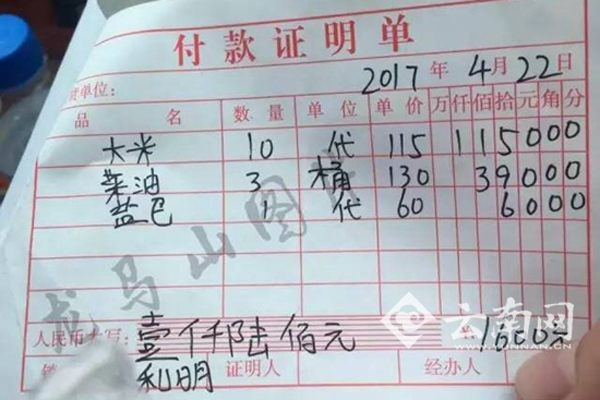 付款证明单
货单位： 2017年4月22日
品名 数量 单位 单价 万 仟 佰 拾 元 角 分
大米 10 代 115 1 1 5 0 0 0
菜油 3 桶 130 3 9 0 0 0
盐巴 1 代 60 6 0 0 0
龙马山图片
人民币大写： 壹仟陆佰元 1600元
云南网
YUNNAN.CN
利明 证明人 经办人